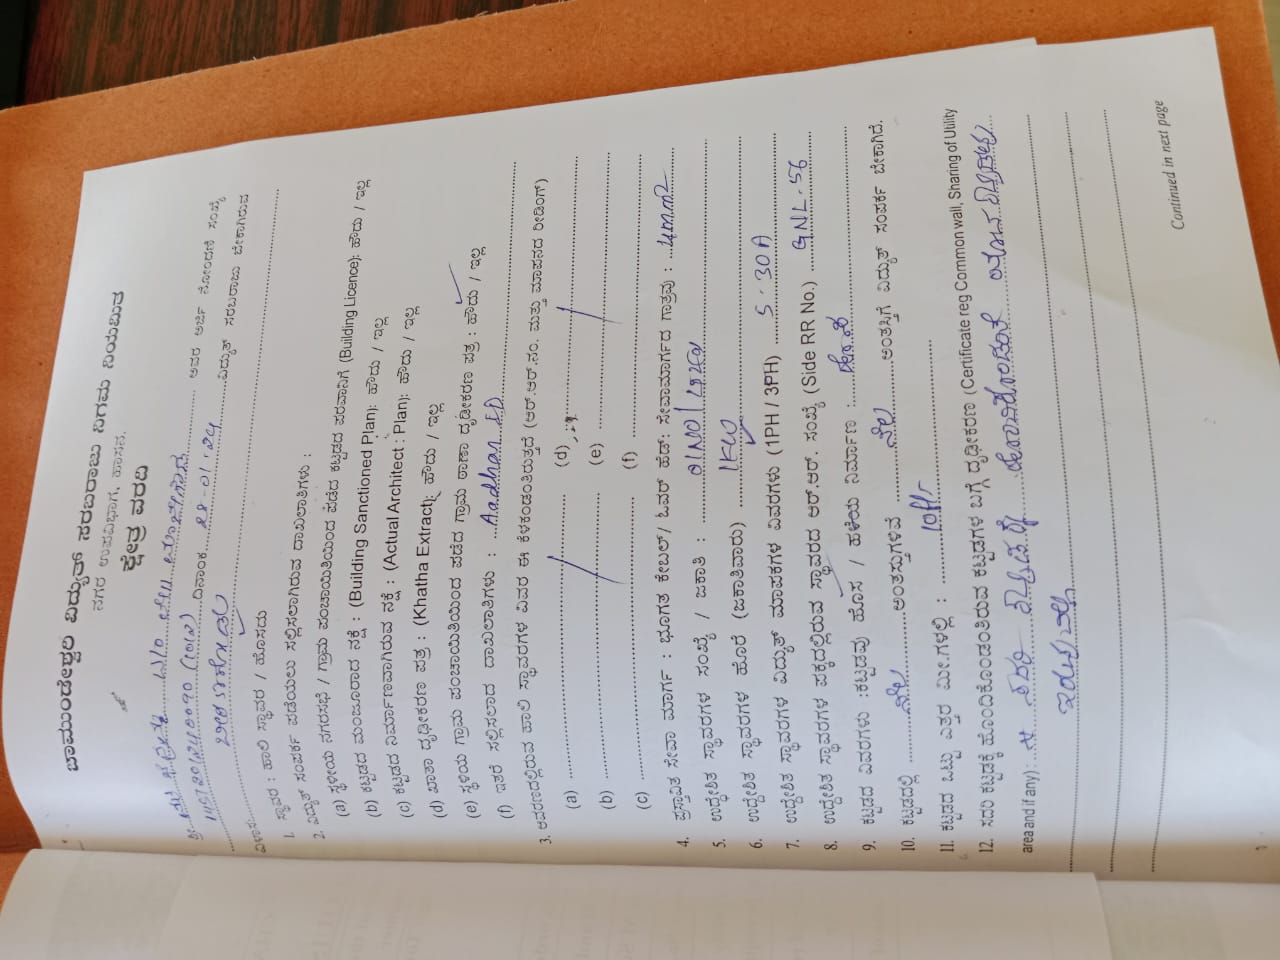 ಚಾಮುಂಡೇಶ್ವರಿ ವಿದ್ಯುತ್ ಸರಬರಾಜು ನಿಗಮ ನಿಯಮಿತ
ನಗರ ಉಪವಿಭಾಗ, ಹಾಸನ.
ಕ್ಷೇತ್ರ ವರದಿ
ಶ್ರೀ
ದಿನಾಂಕ 25-01-24 ಅವರ ಅರ್ಜಿ ನೋಂದಣಿ ಸಂಖ್ಯೆ
ವಿಳಾಸ: ವಿದ್ಯುತ್ ಸರಬರಾಜು ಬೇಕಾಗಿರುವ
1. ಸ್ಥಾವರ : ಹಾಲಿ ಸ್ಥಾವರ / ಹೊಸದು
2. ವಿದ್ಯುತ್ ಸಂಪರ್ಕ ಪಡೆಯಲು ಸಲ್ಲಿಸಲಾಗಿರುವ ದಾಖಲಾತಿಗಳು :
(a) ಸ್ಥಳೀಯ ನಗರಸಭೆ / ಗ್ರಾಮ ಪಂಚಾಯಿತಿಯಿಂದ ಪಡೆದ ಕಟ್ಟಡದ ಪರವಾನಿಗೆ (Building Licence): ಹೌದು / ಇಲ್ಲ
(b) ಕಟ್ಟಡದ ಮಂಜೂರಾದ ನಕ್ಷೆ : (Building Sanctioned Plan): ಹೌದು / ಇಲ್ಲ
(c) ಕಟ್ಟಡದ ನಿರ್ಮಾಣವಾಗಿರುವ ನಕ್ಷೆ : (Actual Architect : Plan): ಹೌದು / ಇಲ್ಲ
(d) ಖಾತಾ ದೃಢೀಕರಣ ಪತ್ರ : (Khatha Extract): ಹೌದು / ಇಲ್ಲ
(e) ಸ್ಥಳಿಯ ಗ್ರಾಮ ಪಂಚಾಯಿತಿಯಿಂದ ಪಡೆದ ಗ್ರಾಮ ಠಾಣಾ ದೃಢೀಕರಣ ಪತ್ರ : ಹೌದು / ಇಲ್ಲ
(f) ಇತರೆ ಸಲ್ಲಿಸಲಾದ ದಾಖಲಾತಿಗಳು : Aadhar ID
3. ಆವರಣದಲ್ಲಿರುವ ಹಾಲಿ ಸ್ಥಾವರಗಳ ವಿವರ ಈ ಕೆಳಕಂಡಂತಿರುತ್ತದೆ (ಆರ್.ಆರ್.ನಂ. ಮತ್ತು ಮಾಪನದ ರೀಡಿಂಗ್)
(a) (d)
(b) (e)
(c) (f)
4. ಪ್ರಸ್ತಾವಿತ ಸೇವಾ ಮಾರ್ಗ : ಭೂಗತ ಕೇಬಲ್/ ಓವರ್ ಹೆಡ್: ಸೇವಾಮಾರ್ಗದ ಗಾತ್ರವು : 4mm2
5. ಉದ್ದೇಶಿತ ಸ್ಥಾವರಗಳ ಸಂಖ್ಯೆ / ಜಕಾತಿ : 01NO
6. ಉದ್ದೇಶಿತ ಸ್ಥಾವರಗಳ ಹೊರೆ (ಜಕಾತಿವಾರು) 1KW
7. ಉದ್ದೇಶಿತ ಸ್ಥಾವರಗಳ ವಿದ್ಯುತ್ ಮಾಪಕಗಳ ವಿವರಗಳು (1PH / 3PH) 5-30A
8. ಉದ್ದೇಶಿತ ಸ್ಥಾವರಗಳ ಪಕ್ಕದಲ್ಲಿರುವ ಸ್ಥಾವರದ ಆರ್.ಆರ್. ಸಂಖ್ಯೆ (Side RR No.) GNL-56
9. ಕಟ್ಟಡದ ವಿವರಗಳು :ಕಟ್ಟಡವು ಹೊಸ / ಹಳೆಯ ನಿರ್ಮಾಣ : ಹೊಸ
10. ಕಟ್ಟಡದಲ್ಲಿ ನೆಲ ಅಂತಸ್ತುಗಳಿವೆ ನೆಲ ಅಂತಸ್ತಿಗೆ ವಿದ್ಯುತ್ ಸಂಪರ್ಕ ಬೇಕಾಗಿದೆ.
11. ಕಟ್ಟಡದ ಒಟ್ಟು ಎತ್ತರ ಮೀ.ಗಳಲ್ಲಿ :
12. ಸದರಿ ಕಟ್ಟಡಕ್ಕೆ ಹೊಂದಿಕೊಂಡಂತಿರುವ ಕಟ್ಟಡಗಳ ಬಗ್ಗೆ ದೃಢೀಕರಣ (Certificate reg Common wall, Sharing of Utility
area and if any):
ಇರುವುದಿಲ್ಲ
Continued in next page